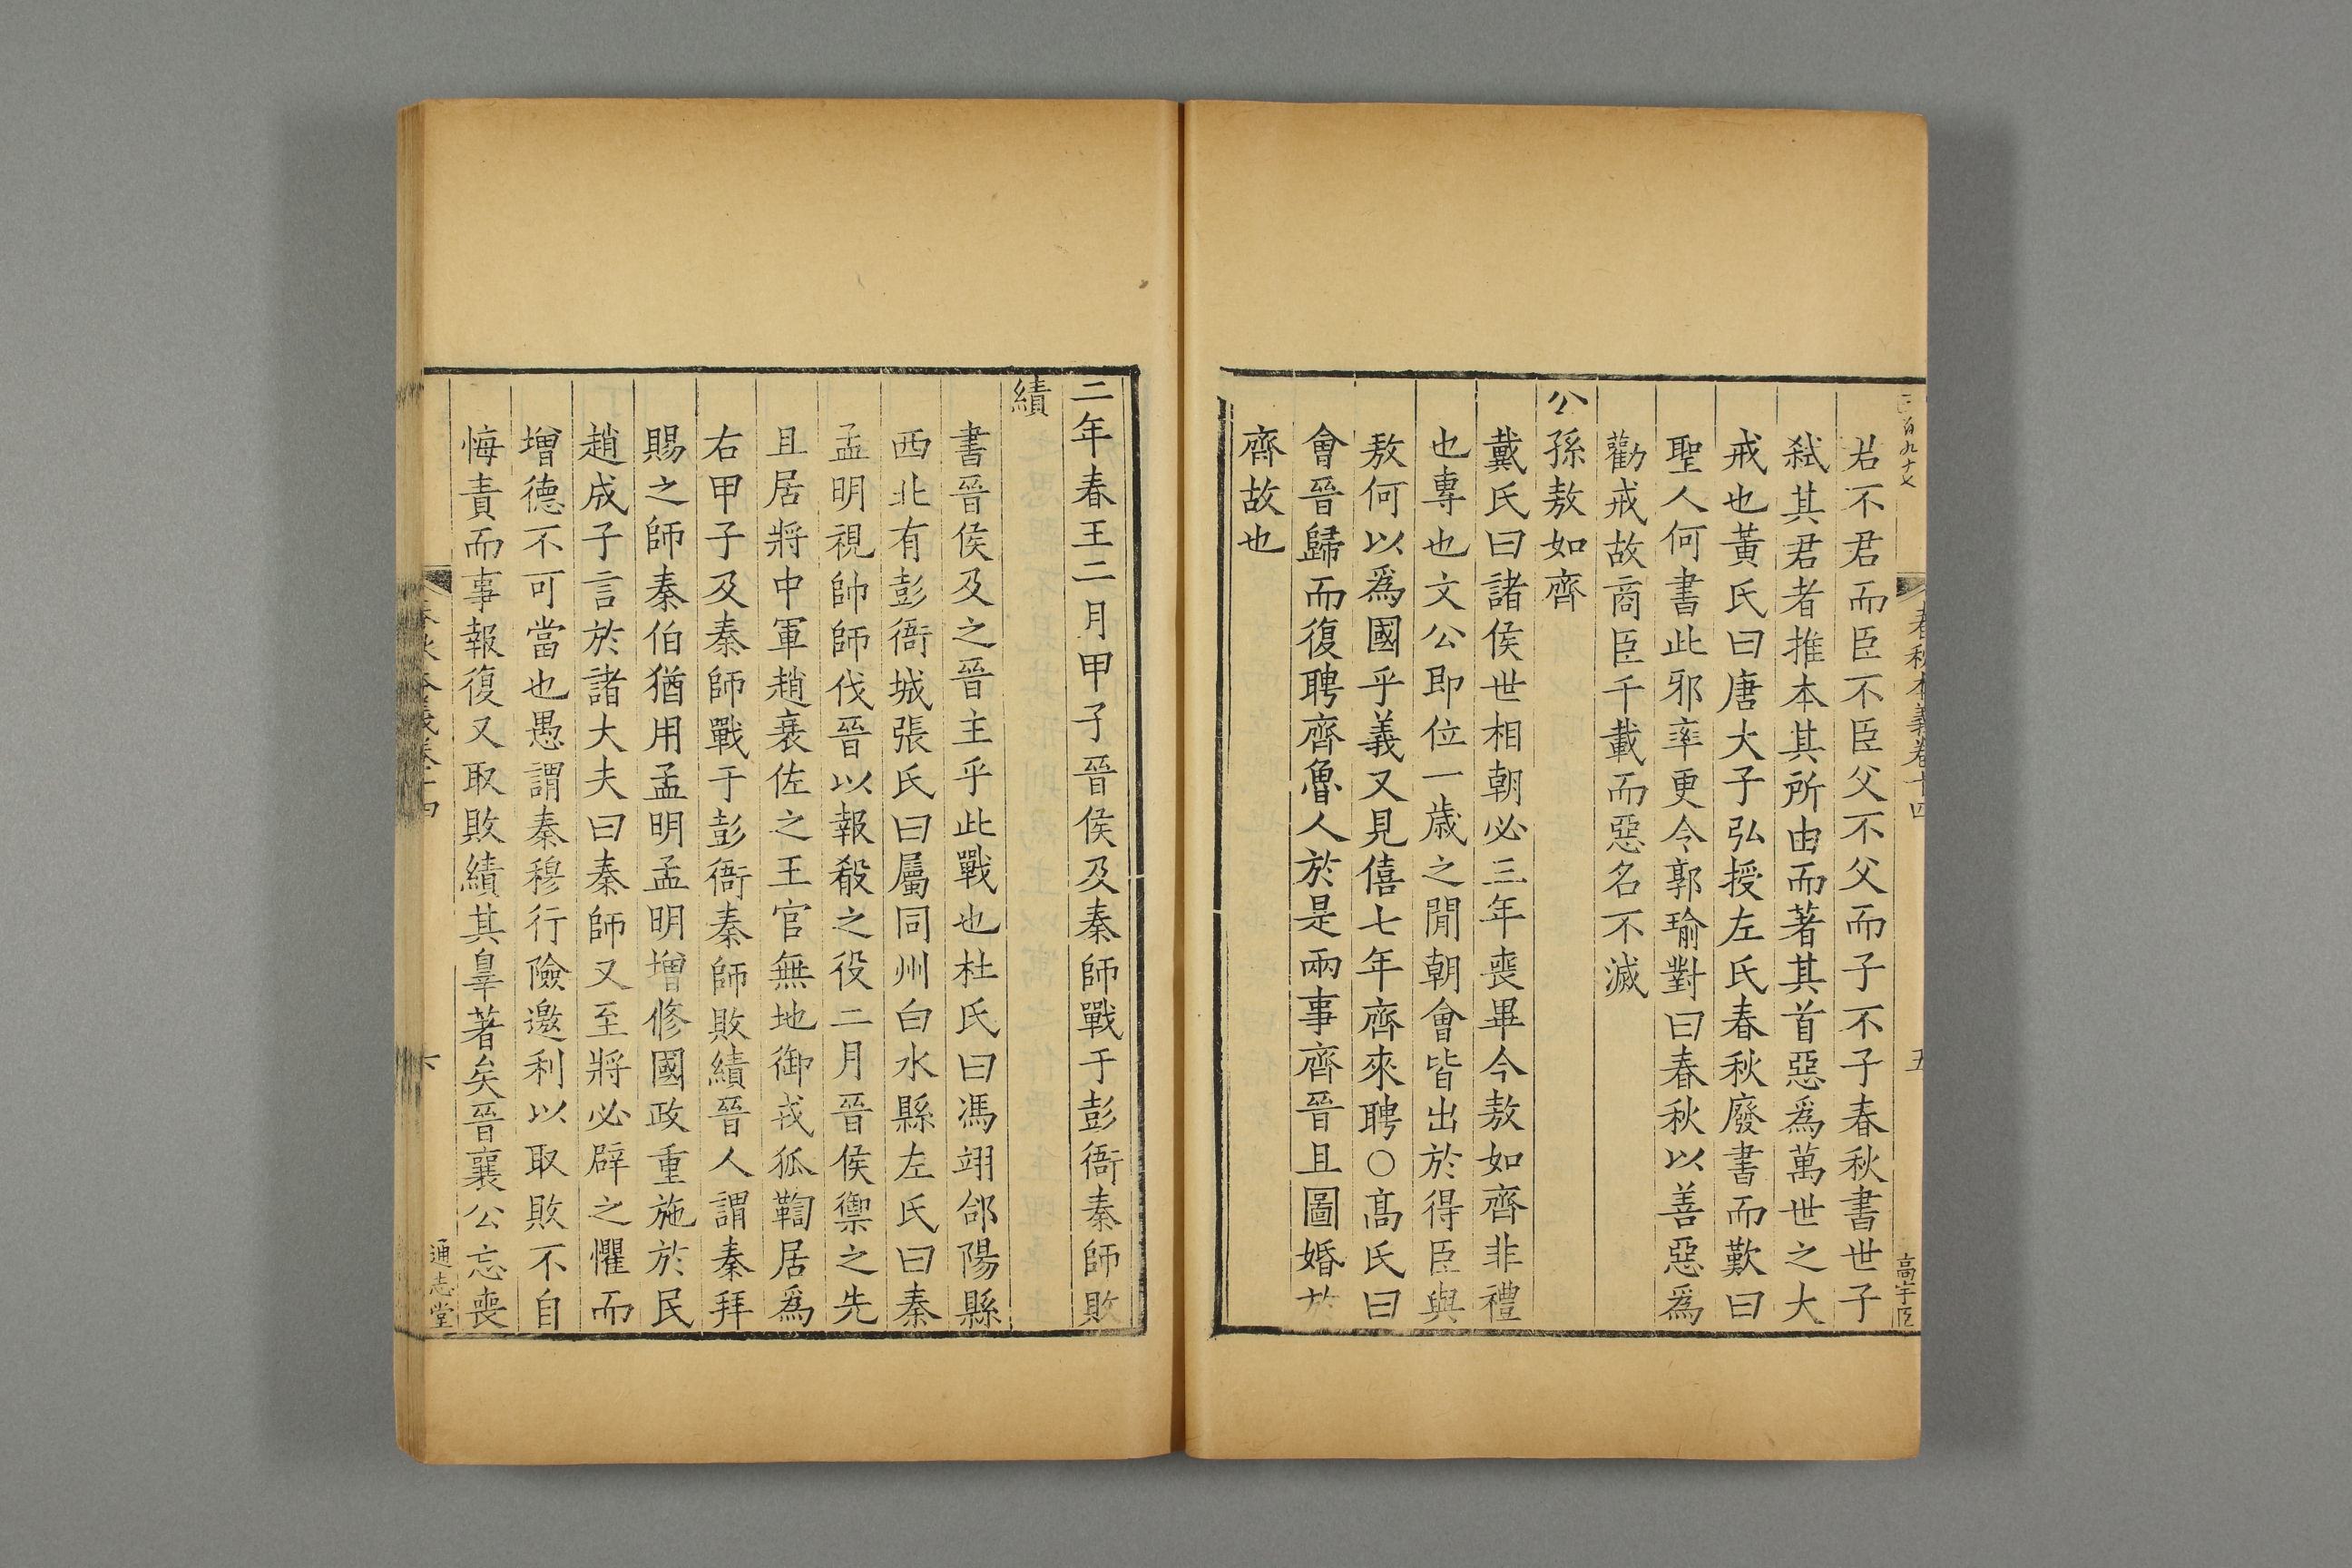 春秋本義卷十四
五
高宇臣
君不君而臣不臣父不父而子不子春秋書世子
弑其君者推本其所由而著其首惡爲萬世之大
戒也黃氏曰唐大子弘授左氏春秋廢書而歎曰
聖人何書此邪率更令郭瑜對曰春秋以善惡爲
勸戒故商臣千載而惡名不滅
公孫敖如齊
戴氏曰諸侯世相朝必三年喪畢今敖如齊非禮
也專也文公即位一歲之閒朝會皆出於得臣與
敖何以爲國乎義又見僖七年齊來聘○髙氏曰
會晉歸而復聘齊魯人於是兩事齊晉且圖婚於
齊故也
二年春王二月甲子晉侯及秦師戰于彭衙秦師敗
績
書晉侯及之晉主乎此戰也杜氏曰馮翊郃陽縣
西北有彭衙城張氏曰屬同州白水縣左氏曰秦
孟明視帥師伐晉以報殽之役二月晉侯禦之先
且居將中軍趙衰佐之王官無地御戎狐鞫居爲
右甲子及秦師戰于彭衙秦師敗績晉人謂秦拜
賜之師秦伯猶用孟明孟明增修國政重施於民
趙成子言於諸大夫曰秦師又至將必辟之懼而
增德不可當也愚謂秦穆行險邀利以取敗不自
悔責而事報復又取敗績其辠著矣晉襄公忘喪
通志堂